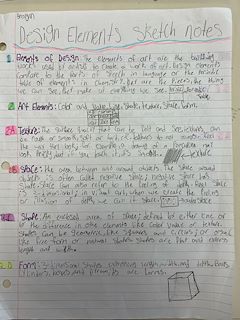 Design Elements Sketch notes
1. Elements of Design The elements of art are the building
blocks used by artists to create a work of art. Design elements
compare to the Parts of speech in language or the
table of elements in chemistry. They are the Pieces, the things
we can see, that make up everything we see.
2. Art Elements: Color and Value, Line, Shape, texture, Space, form
Texture: The surface that can be felt and seen. textures can
be rough or smooth, soft or hard. textures do not always feel
the way they look; for example, a drawing of a Porcupine may
look Prickly, but if you touch it, it's
texture
Space: The area between and around objects. The space around
objects is often called negative space; negative space has
shape. Space can also refer to the feeling of depth. Real space
is 3 dimensional; in visual art, when we create the feeling
or illusion of depth, we call it space.
Shape: An enclosed area of space; defined by either line or
or the difference in one elements like color, value or texture.
Shapes can be geometric, like squares and circles; or organic
like free form or natural shapes. Shapes are flat and express
length and width.
Form: 3 dimensional shapes expressing length, width, and
Cylinders, boxes and Pyramids are forms.